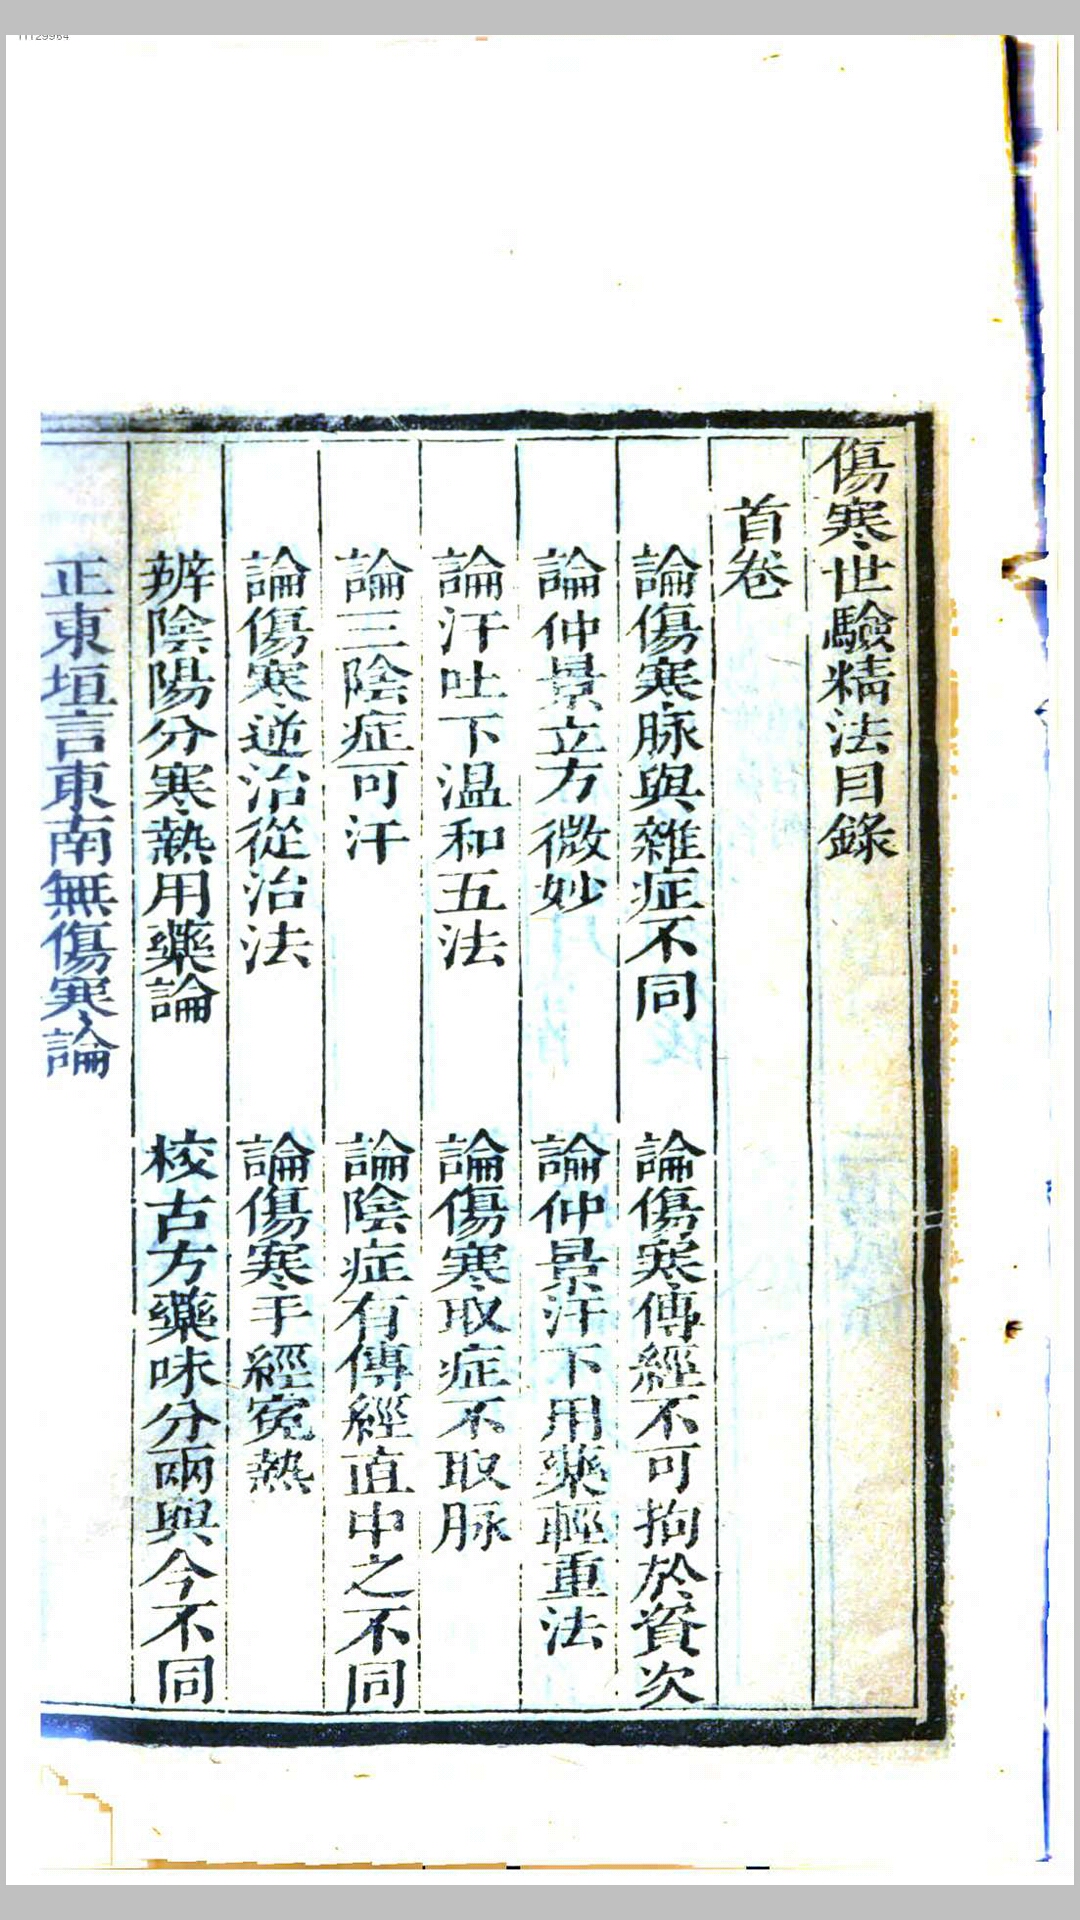 傷寒世驗精法目錄
首卷
論傷寒脉與雜症不同　論傷寒傳經不可拘於資次
論仲景立方微妙　論仲景汗下用藥輕重法
論汗吐下温和五法　論傷寒取症不取脉
論三陰症可汗　論陰症有傳經直中之不同
論傷寒逆治從治法　論傷寒手經寃熱
辨陰陽分寒熱用藥論　校古方藥味分兩與今不同
正東垣言東南無傷寒論